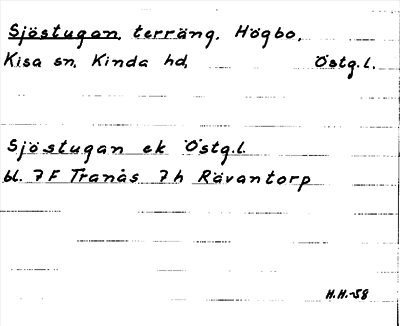 Sjöstugan, terräng, Högbo,
Kisa sn, Kinda hd, Östg.l.
Sjöstugan ek Östg.l.
bl. 7 F Tranås 7 h Rävantorp
H.H.-58